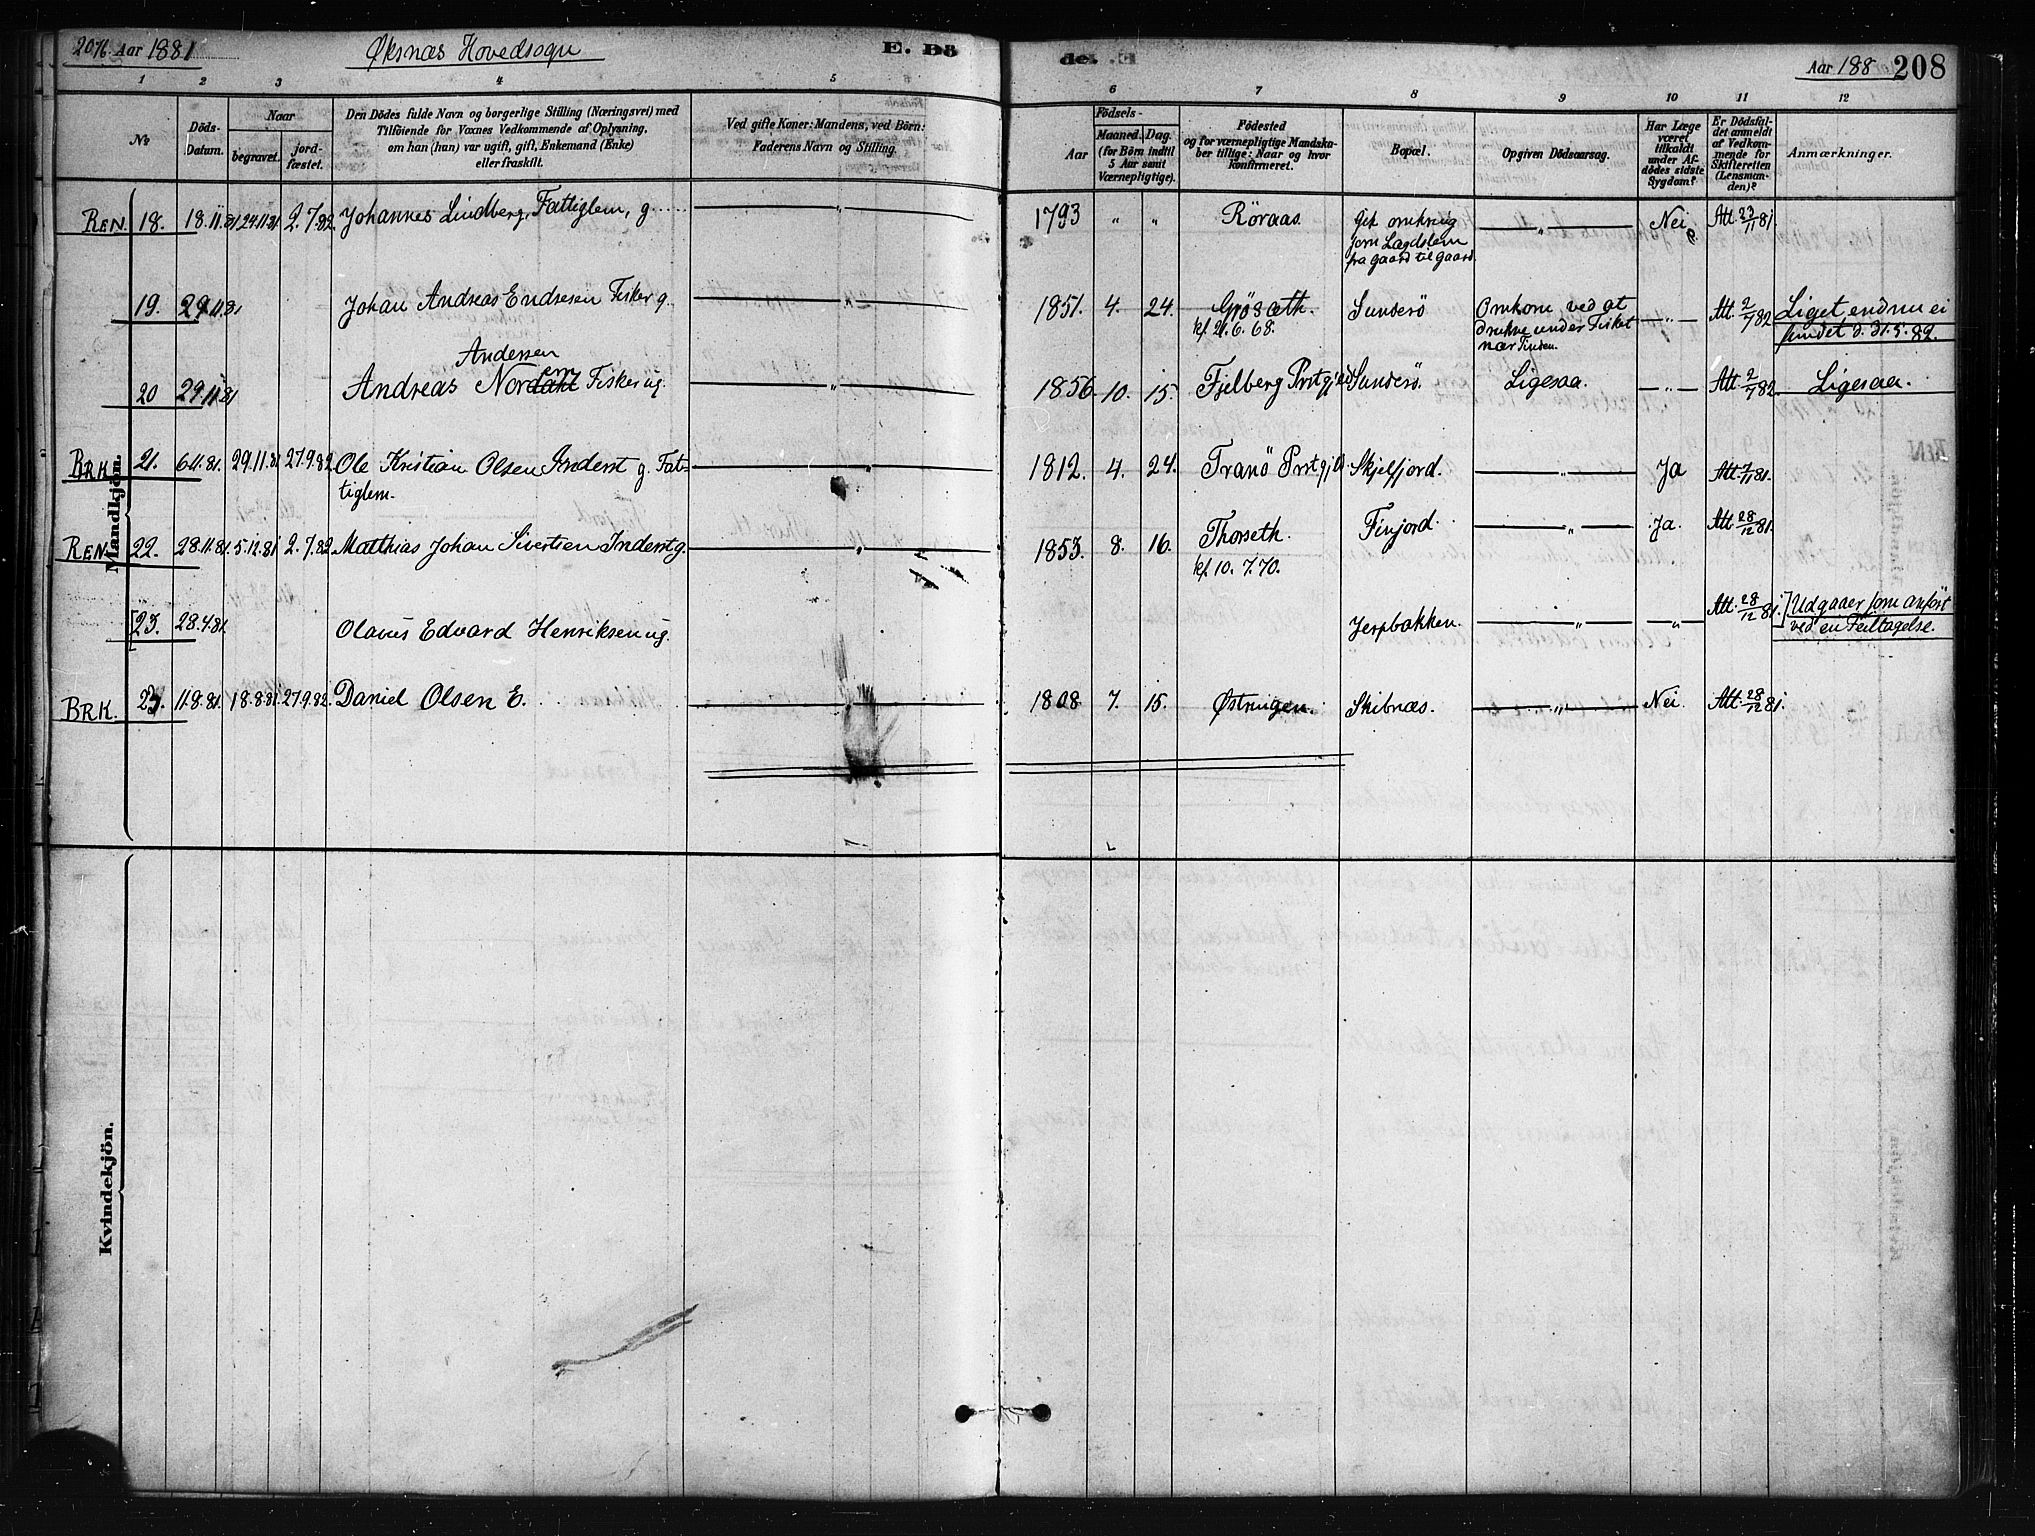 2076 Aar 1881 Øksnæs Hovedsogn E. Dö
de. .E Aar 188 208
1 2 3 4 5 6 7 8 9 10 11 12
No
Döds-Datum.
Naar
begravet.
jord-fæstet.
Den Dödes fulde Navn og borgerlige Stilling (Næringsvei) med
Tilföiende for Voxnes Vedkommende af Oplysning,
om han (hun) var ugift, gift, Enkemand (Enke)
eller fraskilt.
Ved gifte Koner: Mandens, ved Börn:
Faderens Navn og Stilling.
Födsels-
Aar
Maaned. Dag.
(for Börn indtil
5 Aar samt
Værnepligtige).
Födested
og for værnepligtige Mandska-
ber tillige: Naar og hvor
konfirmeret.
Bopæl.
Opgiven Dödsaarsag.
Har Læge
været
tilkaldt
under Af-
dödes sidste
Sygdom?
Er Dödsfal-
det anmeldt
af Vedkom-
mende for
Skifteretten
(Lensman-
den)?
Anmærkninger.
Mandkjön.
REN. 18. 18.11.81 24.11.81 2.7.82. Johannes Lindberg, Fattiglem, g. " 1793 " " Röraas. gik omkring " Nei Att. 23/11 81.
som Lægdslem
fra gaard til gaard.
19. 29.11.81 Johan Andreas Endresen Fisker g. " 1851. 4. 24. Sunderö Omkom ved at " Att. 2/1 82 Liget endnu ei
kf. 21.6.68. under Fisket fundet d. 31.5.82.
nær Tinden.
Andersen
20 29.11.81 Andreas Nordahl Fisker ug. " 1856. 10. 15. Fjelberg Prstgjeld Sunderö. Ligesaa. " Att. 2/1 82. Ligesaa.
BRK. 21. 6.11.81. 29.11.81 27.9.82. Ole Kristian Olsen Inderst g. Fat- " 1812. 4. 24. Tranö Prstgjld Skjelfjord. " Ja Att. 7/11 81.
tiglem.
REN. 22. 28.11.81. 5.12.81 2.7.82 Matthias Johan Sivertsen Inderst g. " 1853. 8. 16. Thorseth. Finjord. " Ja. Att. 28/12 81.
kf. 10. 7.70.
[23. 28.4.81. Olavus Edvard Henriksen ug. Jerpbakken. " " Att. 28/12 81.] Udgaaer som anfört
ved en Feiltagelse.
BRK. 23. 11.8.81. 18.8.81 27.9.82. Daniel Olsen E. " 1808 7. 15. Østningen. Skibnæs. " Nei. Att. 28/12 81.
Kvindekjön.